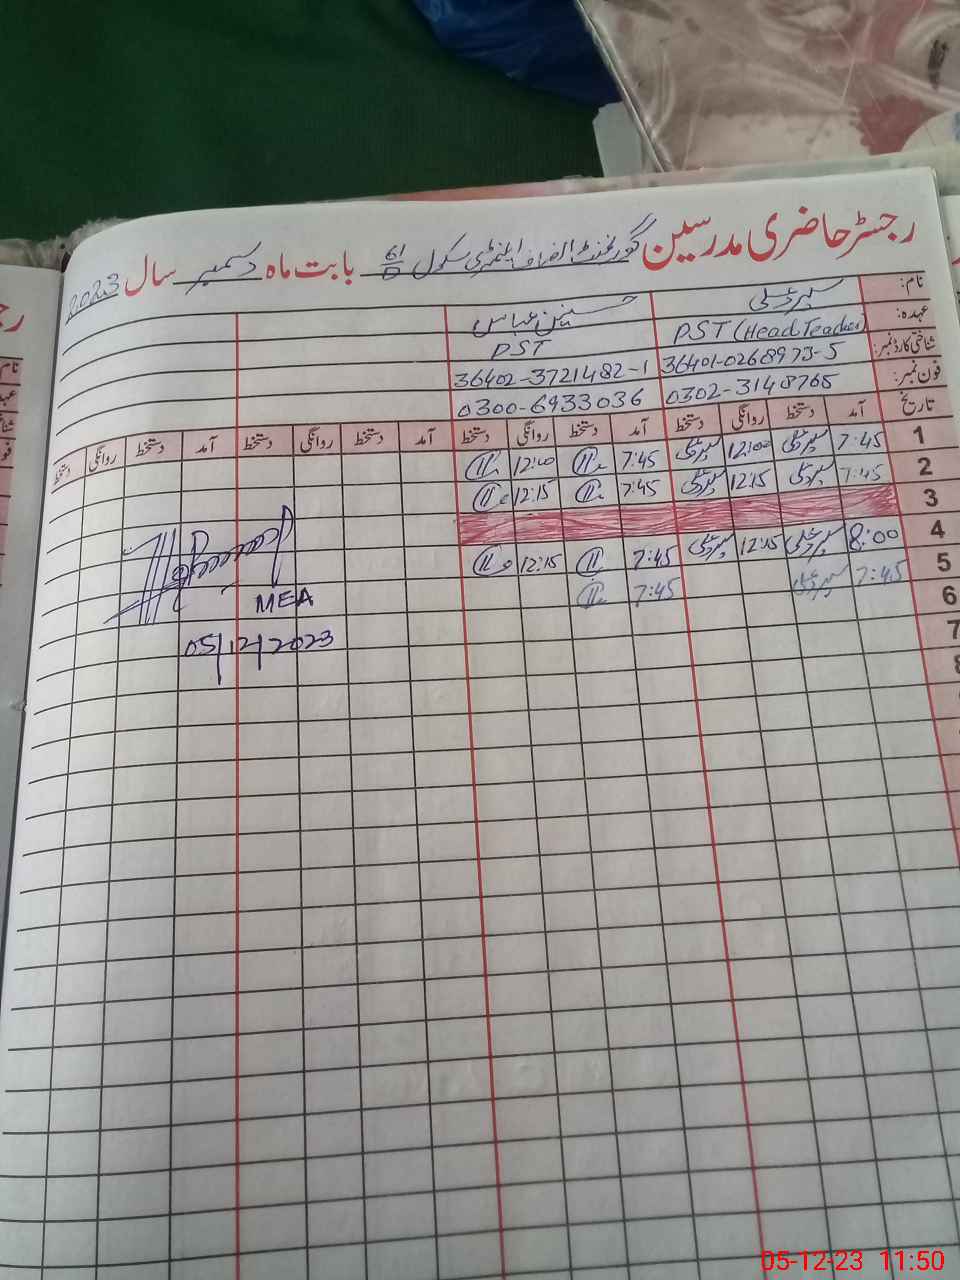 رجسٹر حاضری مدرسین گورنمنٹ الفراف ایلیمنٹری سکول 61/D بابت ماہ دسمبر سال 2023
نام: علی حسنین عباس
عہدہ: PST (Head Teacher) PST
شناختی کارڈ نمبر: 36401-0268973-5 36402-3721482-1
فون نمبر: 0302-3148765 0300-6933036
تاریخ آمد دستخط روانگی دستخط آمد دستخط روانگی دستخط آمد دستخط روانگی دستخط آمد دستخط روانگی دستخط
1 7:45 12:00 7:45 12:00
2 7:45 12:15 7:45 12:15
3
4 8:00 12:15 7:45 12:15
5 7:45 7:45
6
7
8
MEA
05/12/2023
رج
نام
عہ
شنا
فو
05-12-23 11:50